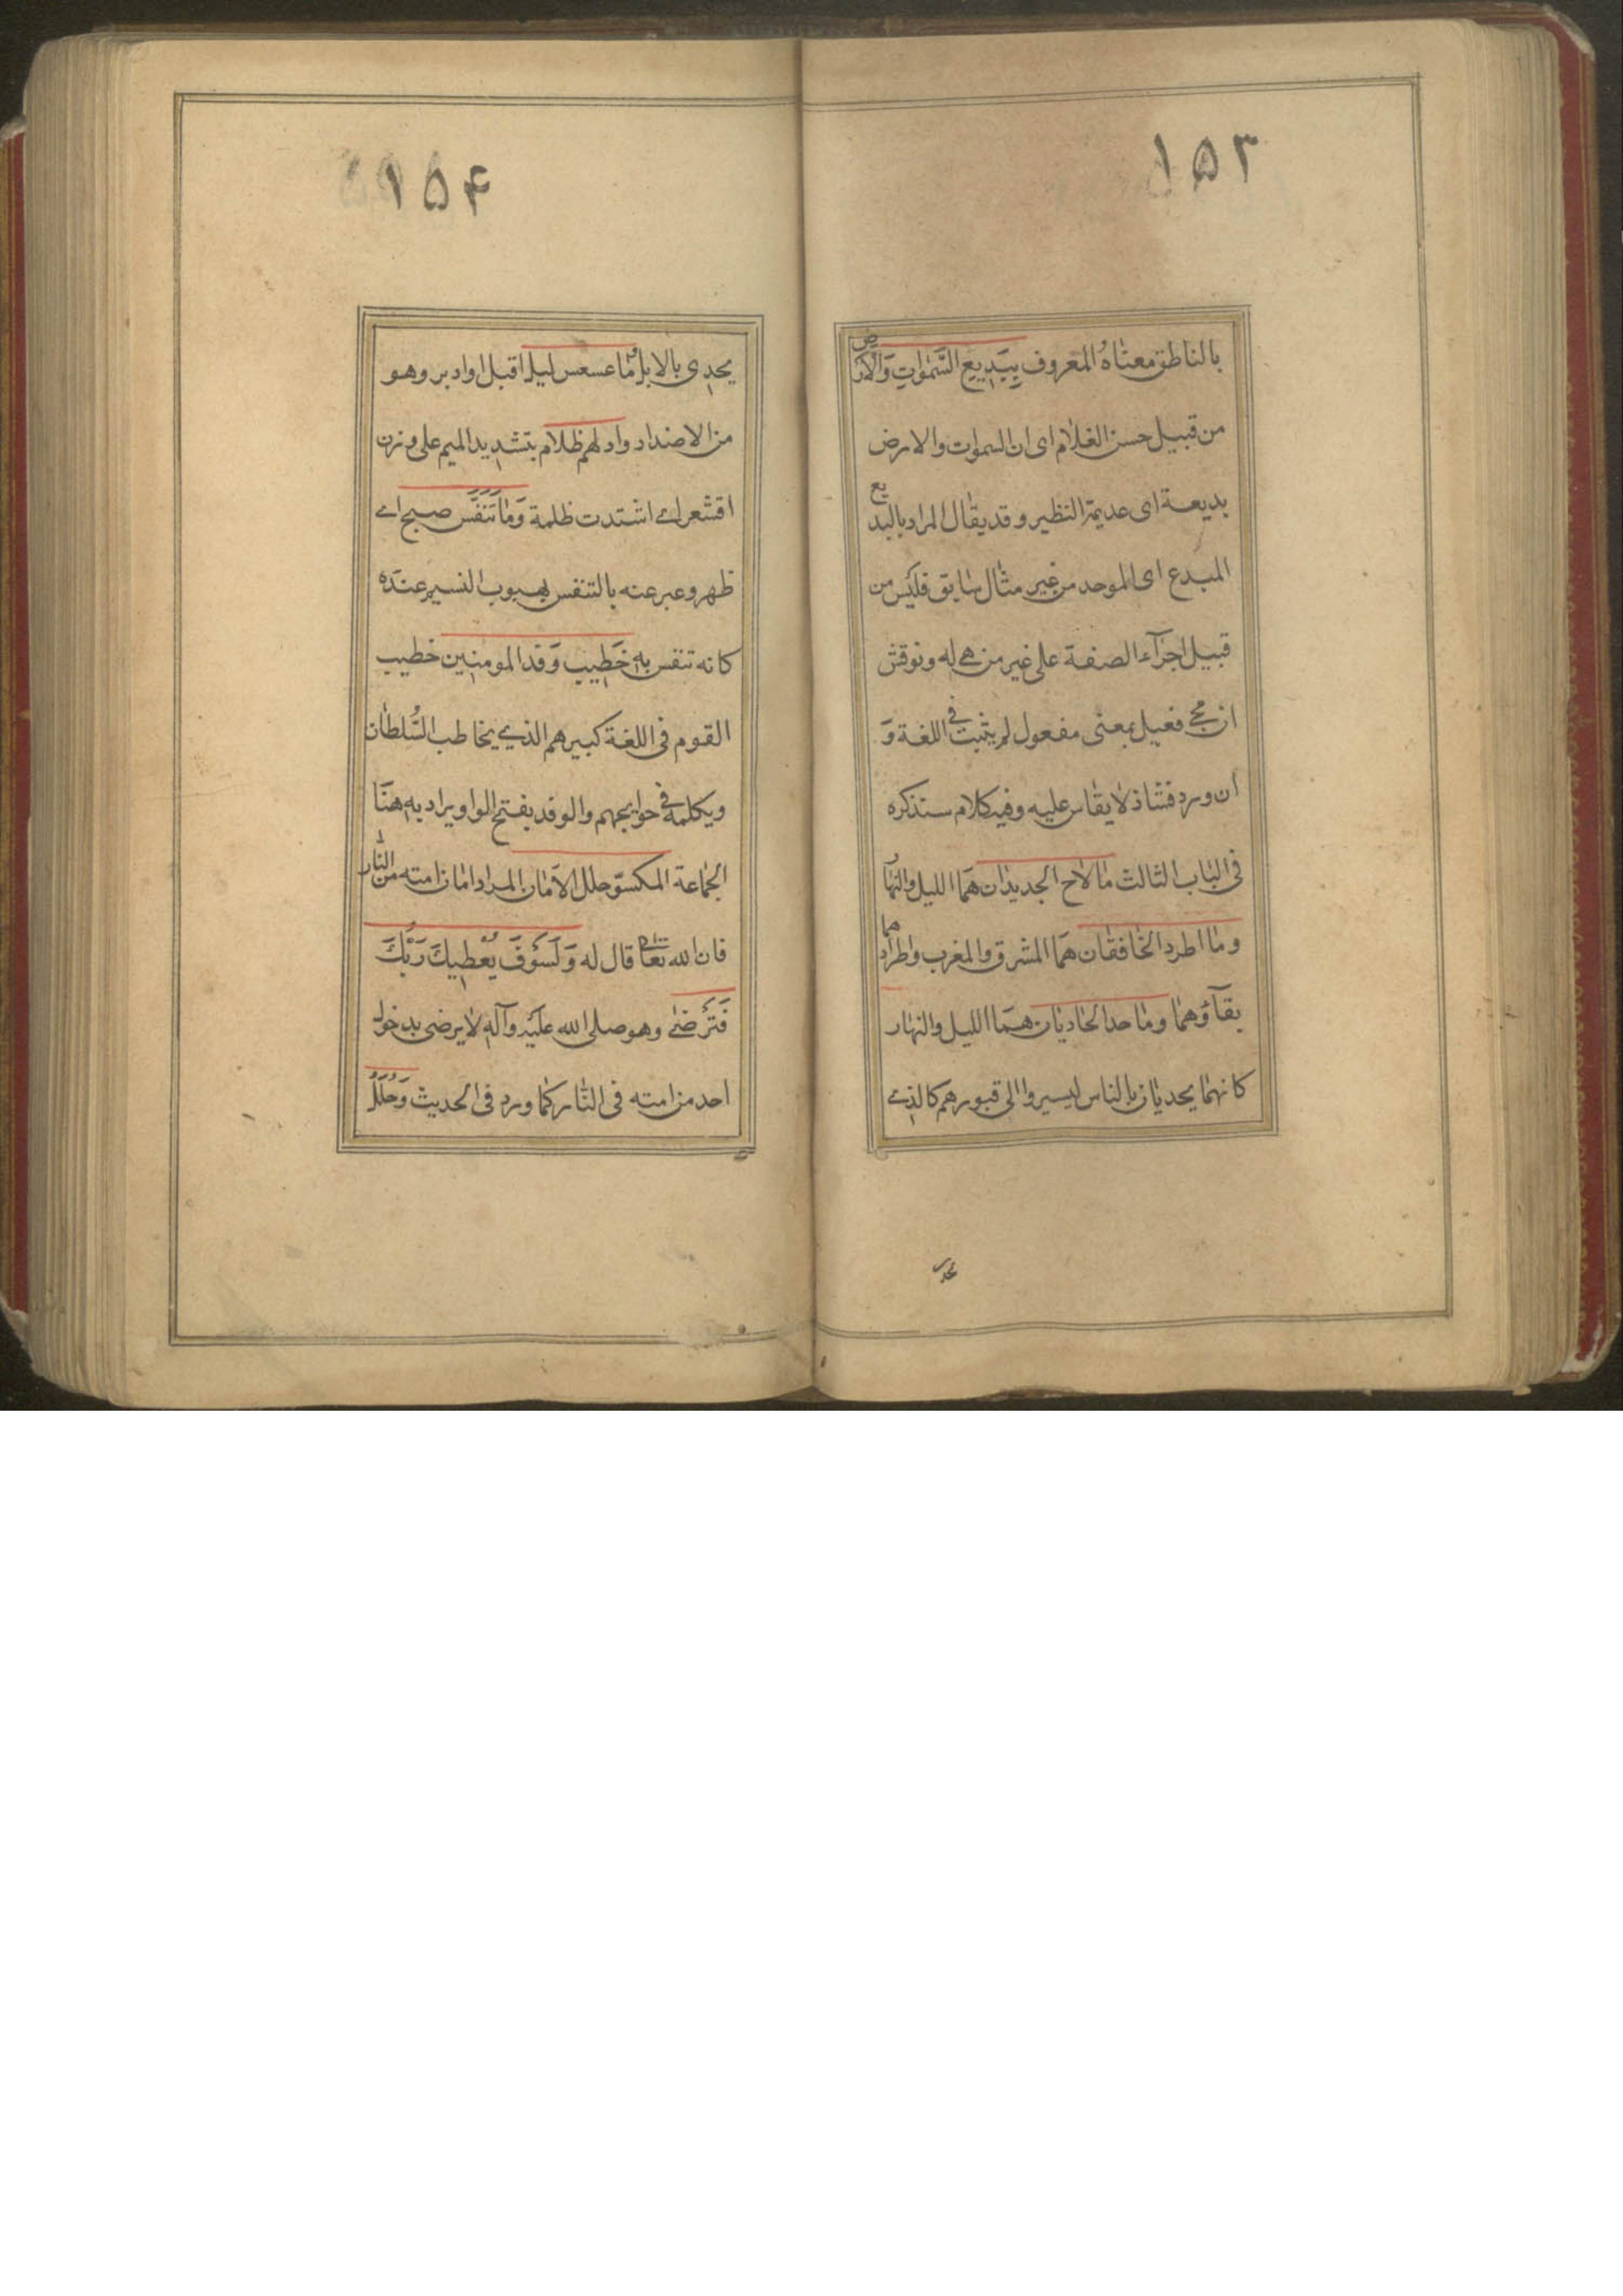 ۱۵۳
بالناطق معناه المعروف بِبَدِيعِ السَّمٰوٰاتِ وَالْاَرْض
من قبيل حسن الغلام اى ان السموات والارض
بديعة اى عديمة النظير وقد يقال المراد بالبديع
المبدع اى الموجد من غير مثال سابق فليس من
قبيل اجرآء الصفة على غير من هى له ونوقش
ان مجئ فعيل بمعنى مفعول لم يثبت فى اللغة وَ
ان ورد فشاذ لا يقاس عليه وفيه كلام ستذكره
فى الباب الثالث ما لاح الجديدان هما الليل والنهار
وما اطرد الخافقان هما المشرق والمغرب واطرادهما
بقآؤهما وما حدا الحاديان هما الليل والنهار
كانهما يحديان بالناس ليسيروا الى قبورهم كالذى
يحد
۱۵۴
يحدى بالابل وما عسعس ليل اقبل او ادبر وهو
من الاضداد وادلهم ظلام بتشديد الميم على وزن
اقشعر اى اشتدت ظلمة وَمَا تَنَفَّس صبح اى
ظهر وعبر عنه بالتنفس بهبوب النسيم عنده
كانه تنفس به خَطِيبِ وَفد المومنين خطيب
القوم فى اللغة كبيرهم الذى يخاطب السُّلطان
ويكلمه فى حوايجهم والوفد بفتح الواو يراد به هنا
الجماعة المكسوّ حلل الامان المراد امان امته من النار
فان الله تعالى قال له وَلَسَوْفَ يُعْطِيكَ رَبُّكَ
فَتَرْضىٰ وهو صلى الله عليه وآله لا يرضى بدخول
احد من امته فى النار كما ورد فى الحديث وَحُلَلُ